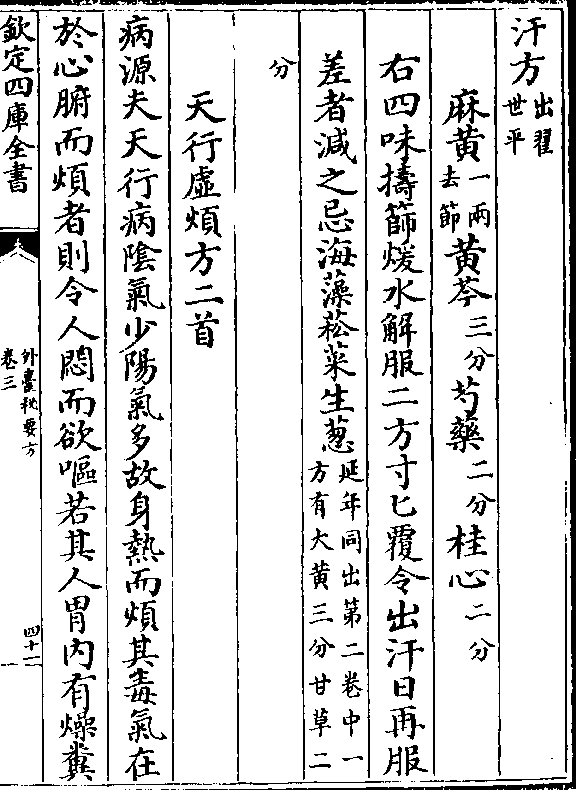 汗方出翟世平
麻黄一兩去節黄芩三分芍藥二分桂心二分
右四味擣篩煖水解服二方寸匕覆令出汗日再服
差者減之忌海藻菘菜生蔥延年同出第二卷中一方有大黄三分甘草二
分
天行虛煩方二首
病源夫天行病陰氣少陽氣多故身熱而煩其毒氣在
於心腑而煩者則令人悶而欲嘔若其人胃内有燥糞
欽定四庫全書
外臺秘要方
卷三
四十二